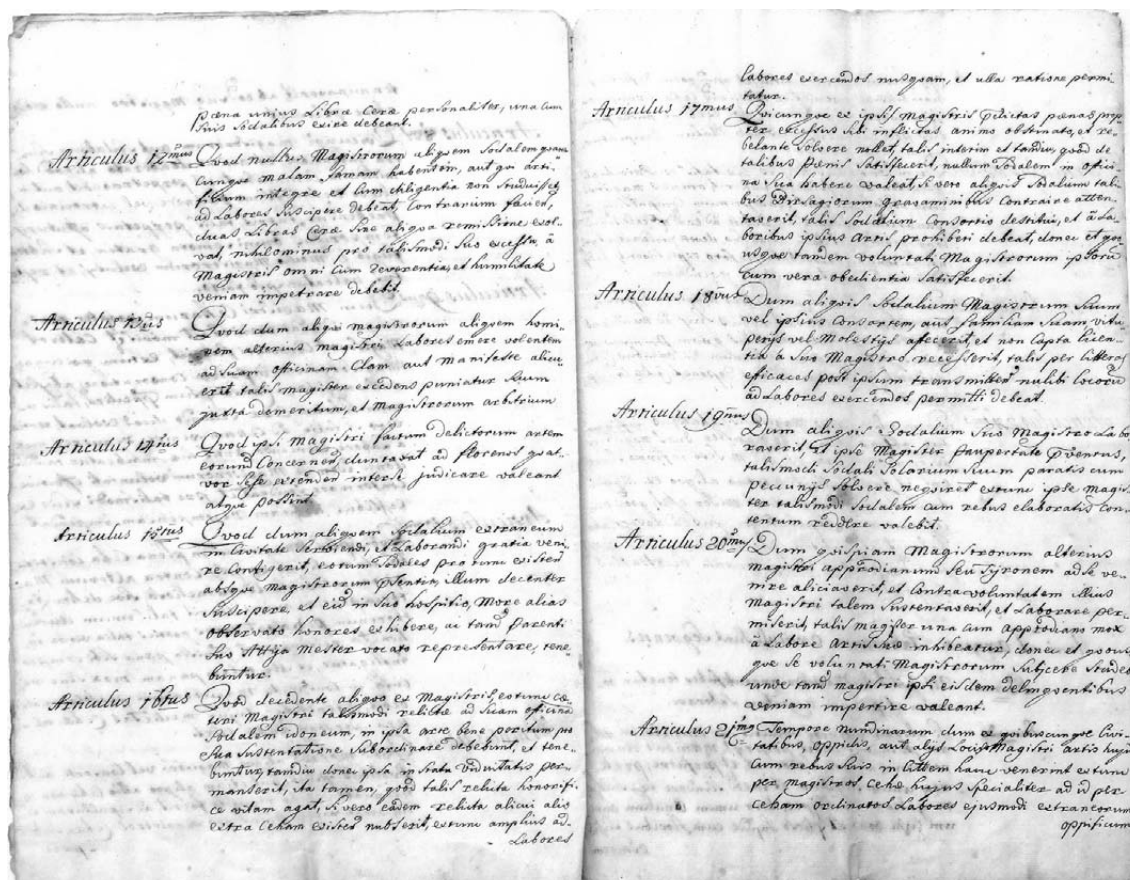 pæna unius Libræ Ceræ personaliter, una cum
suis Sodalibus exire debeant.
Articulus 12mus Quod nullus Magistrorum aliquem Sodalem quam
cunque malam famam habentem, aut qui arti-
ficium integre et Cum diligentia non Studuisset,
ad Labores Suscipere debeat, Contrarium faciens,
duas Libras Ceræ Sine aliqua remissione exol-
vat, nihilominus pro talismodi Suo excessu, à
Magistris omni Cum Reverentia, et humilitate
veniam impetrare debebit.
Articulus 13tius Quod dum aliqui magistrorum aliquem homi-
nem alterius magistri Labores emere volentem
ad Suam officinam Clam aut Manifeste alicu-
erit talis magister excedens puniatur Suum
juxta demeritum, et Magistrorum arbitrium
Articulus 14tus Quod ipsi magistri factum delictorum artem
eorund Concernen, duntaxat ad florenos quat-
vor Sese extenden inter Se judicare valeant
atque possint.
Articulus 15tus Quod dum aliquem Sodalium extraneum
in Civitate Serviendi, et Laborandi gratia veni-
re Contigerit, extum Sodales pro tunc existen
absque Magistrorum psentia, illum decenter
Suscipere, et eid in Suo hospitio, More alias
observato honores exhibere, ac tand Parenti
Suo Attya Mester vocato representare, tene-
buntur.
Articulus 16tus Quod decedente aliquo ex Magistris, extunc Cæ-
teri Magistri talismodi relictæ ad Suam officinã
Sodalem idoneum, in ipsa arte bene peritum pro
Sua Sustentatione Subordinare debebunt, et tene-
buntur, tamdiu donec ipsa in Statu Viduitatis per-
manserit, ita tamen, quod talis relicta honorifi-
ce vitam agat, Si vero eadem relicta alicui alio
extra Ceham existen nubserit, extunc amplius ad
Labores
labores exercendos nusquam, et ulla ratione permi
tatur.
Articulus 17mus Quicunque ex ipsis Magistris pdictas pænas prop
ter excessus Sibi inflictas animo obstinato, et re-
belante Solvere nollet, talis interim et tamdiu, quod de
talibus pænis Satisfecerit, nullum Sodalem in offici
na Sua habere valeat, Si vero aliquis Sodalium tali
bus birsagiorum gravaminibus Contraire atten-
taverit, talis Sodalium Consortio destitui, et à La-
boribus ipsius artis prohiberi debeat, donec et quo-
usque tandem voluntati Magistrorum ipsorũ
cum vera obedientia Satisfecerit.
Articulus 18vus Dum aliquis Sodalium Magistrum Suum
vel ipsius Consortem, aut familiam Suam, vitu-
perijs vel Molestijs affecerit, et non Capta licen-
tia à Suo Magistro recesserit, talis per litteras
efficaces post ipsum transmitten nulibi locorũ
ad Labores exercendos permitti debeat.
Articulus 19nus Dum aliquis Sodalium Suo Magistro Labo
raverit, et ipse Magister Paupertate pventus,
talismodi Sodali Solarium Suum paratis cum
pecunijs Solvere nequiret extunc ipse Magis
ter talismodi Sodalem cum rebus elaboratis Con-
tentum reddere valebit.
Articulus 20mus Dum quispiam Magistrorum alterius
Magistri approdianum Seu Tyronem ad Se ve-
nire aliciaverit, et Contra voluntatem illius
Magistri talem Sustentaverit, et Laborare per-
miserit, talis magister una cum approdiano mox
à Labore Artis Suæ inhibeatur, donec et quous
que Se voluntati Magistrorum Subjcere Studeb
unde tand magistri ipsi eisdem delinquentibus
Veniam impertire valeant.
Articulus 21img Tempore nundinarum dum ex quibuscunque Civi-
tatibus, oppidis, aut alijs Locis Magistri artis hujg
Cum rebus Suis in Cittem hanc venerint extunc
per magistros Cehæ hujus Specialiter ad id per
Ceham ordinatos Labores ejusmodi extraneorum
oppificum